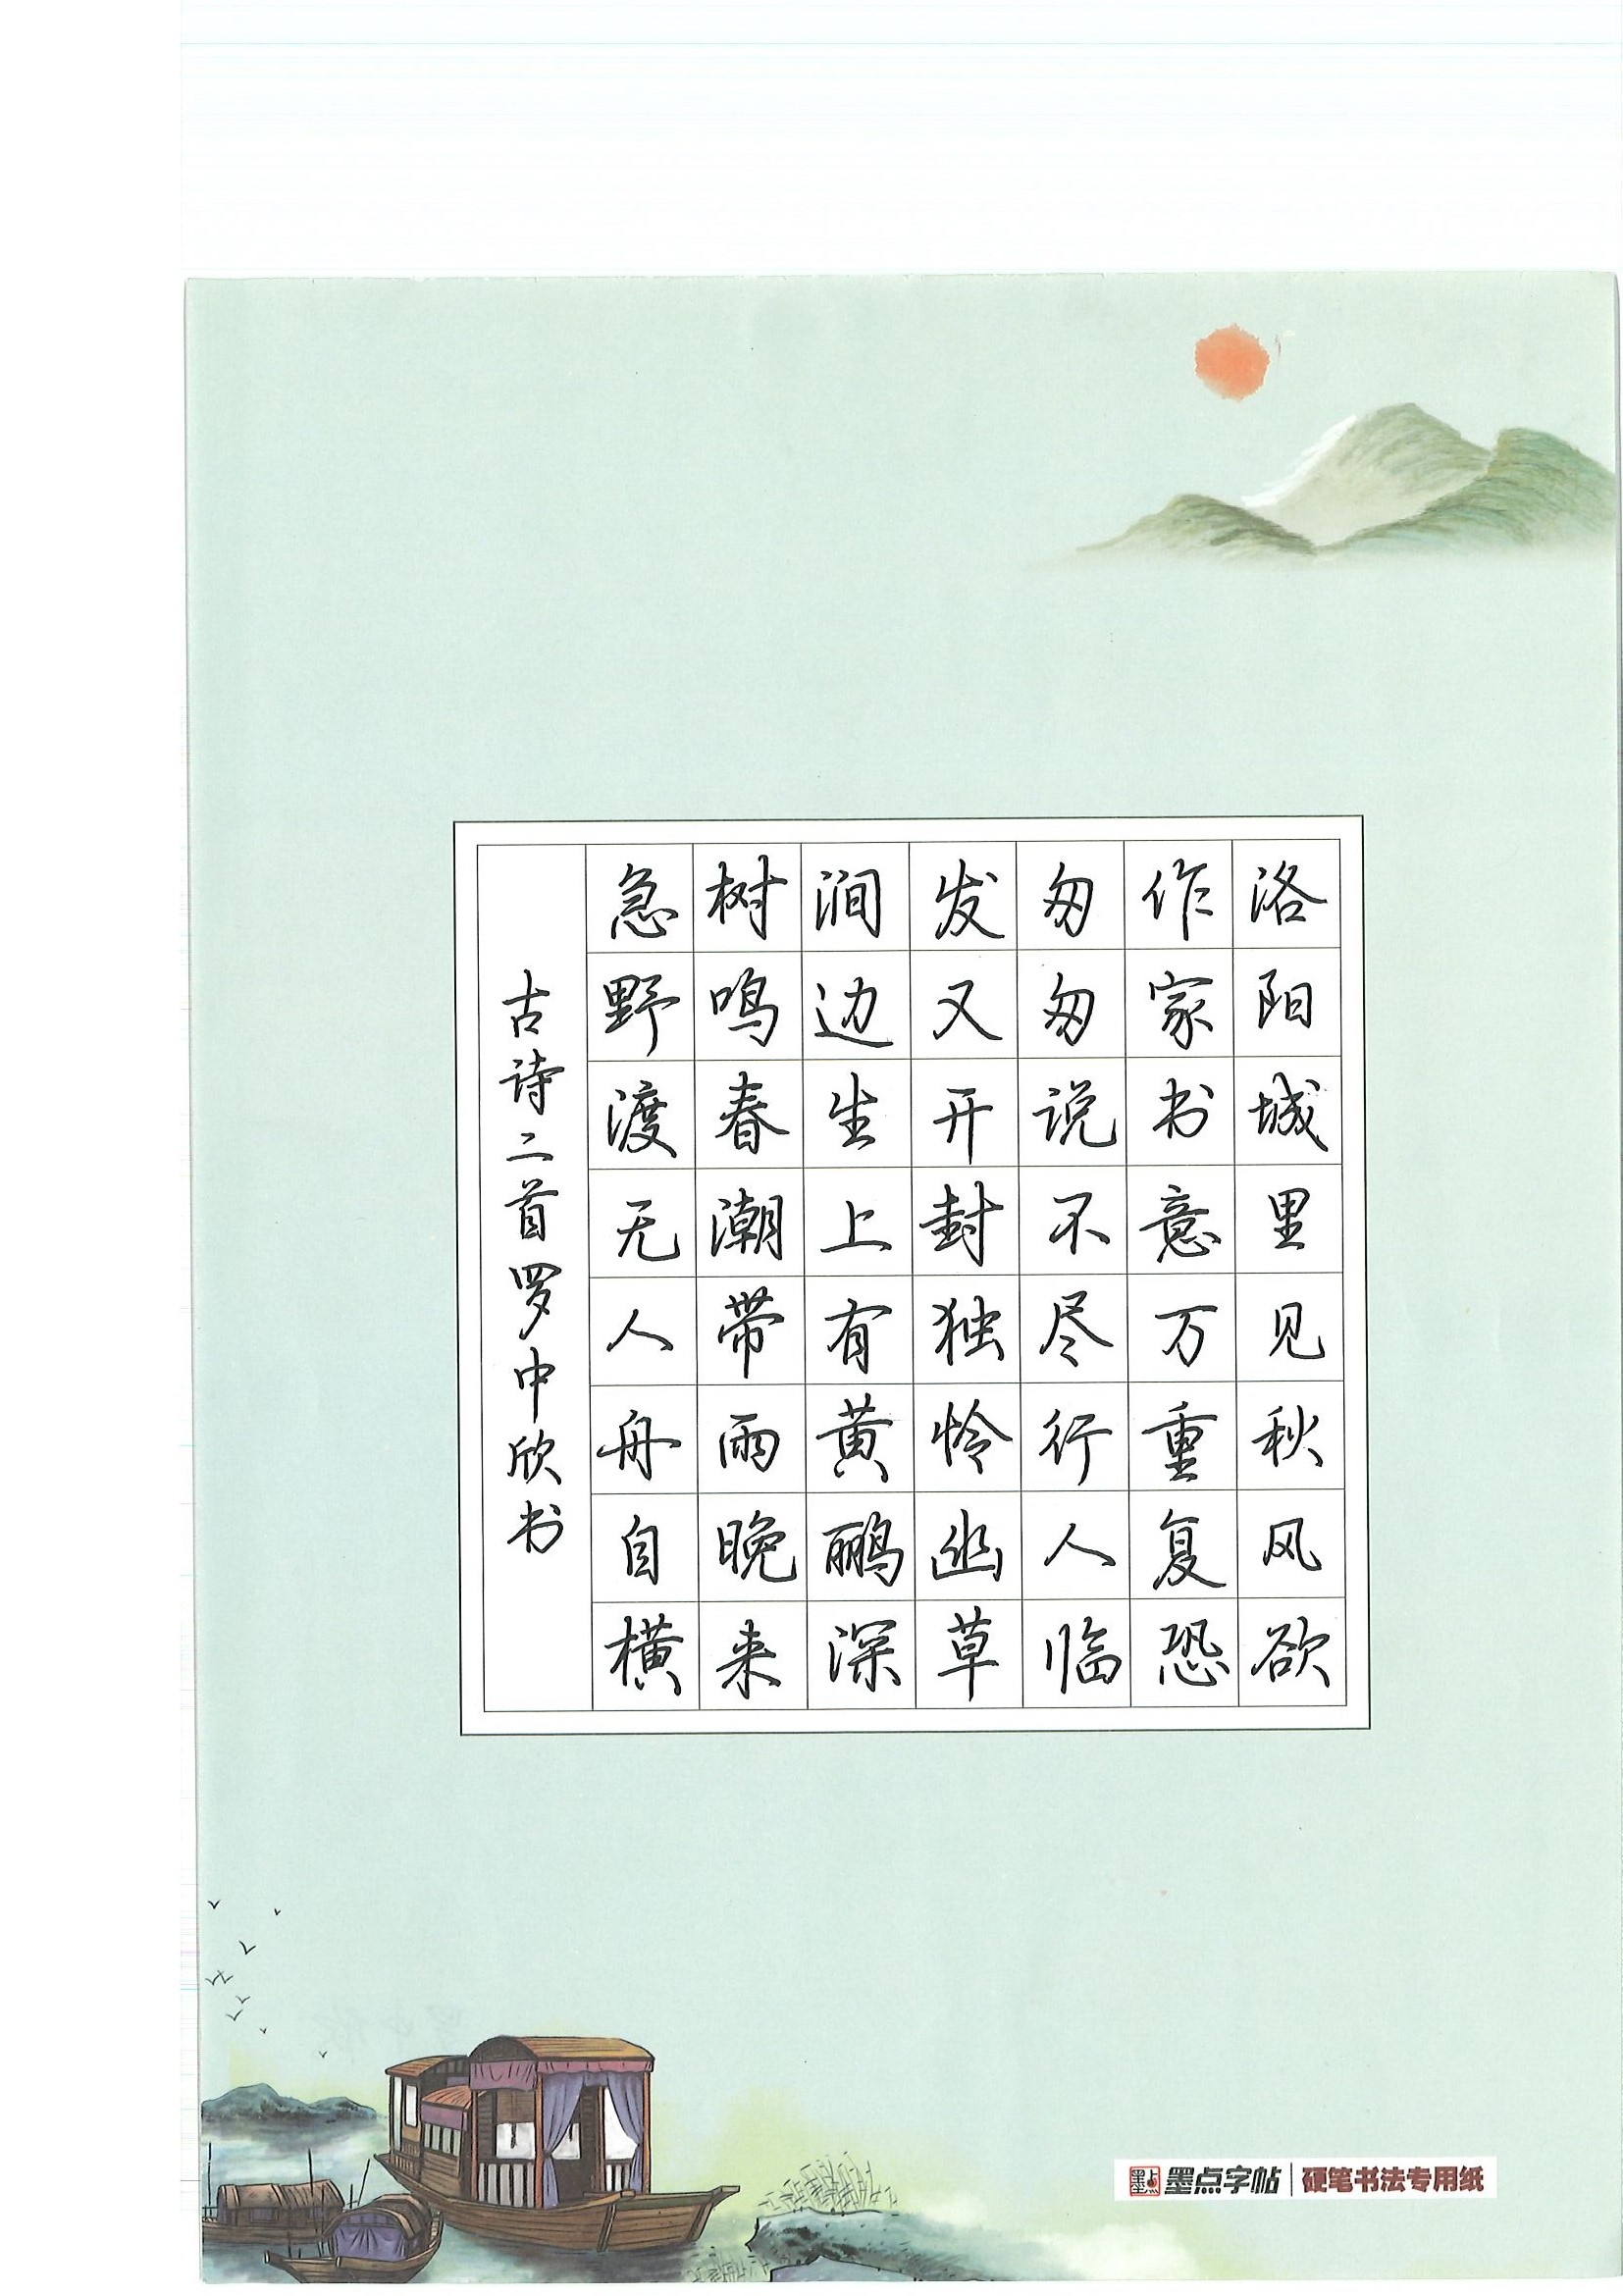 洛阳城里见秋风欲
作家书意万重复恐
匆匆说不尽行人临
发又开封独怜幽草
涧边生上有黄鹂深
树鸣春潮带雨晚来
急野渡无人舟自横
古诗二首罗中欣书
墨点 墨点字帖 | 硬笔书法专用纸